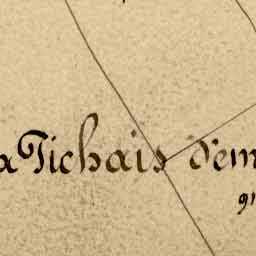 a Tichais d'em